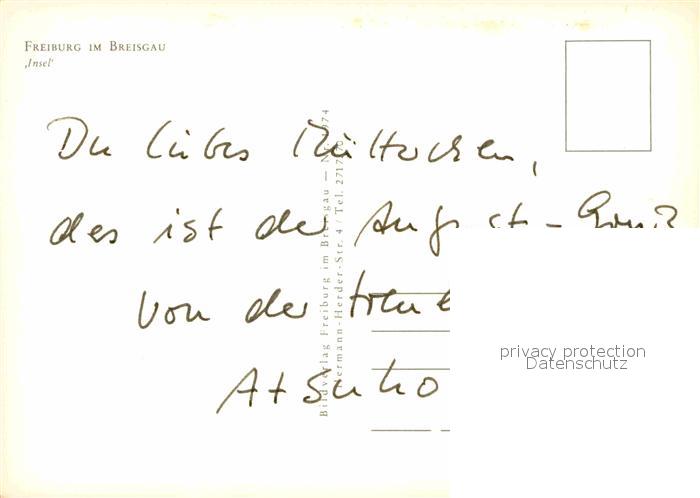 FREIBURG IM BREISGAU
‚Insel'
Du liebes Mütterchen,
das ist der August-Gruß
von der
Atsuko
Bildverlag Freiburg im Breisgau —
Herder-Str. 4 / Tel.
privacy protection
Datenschutz